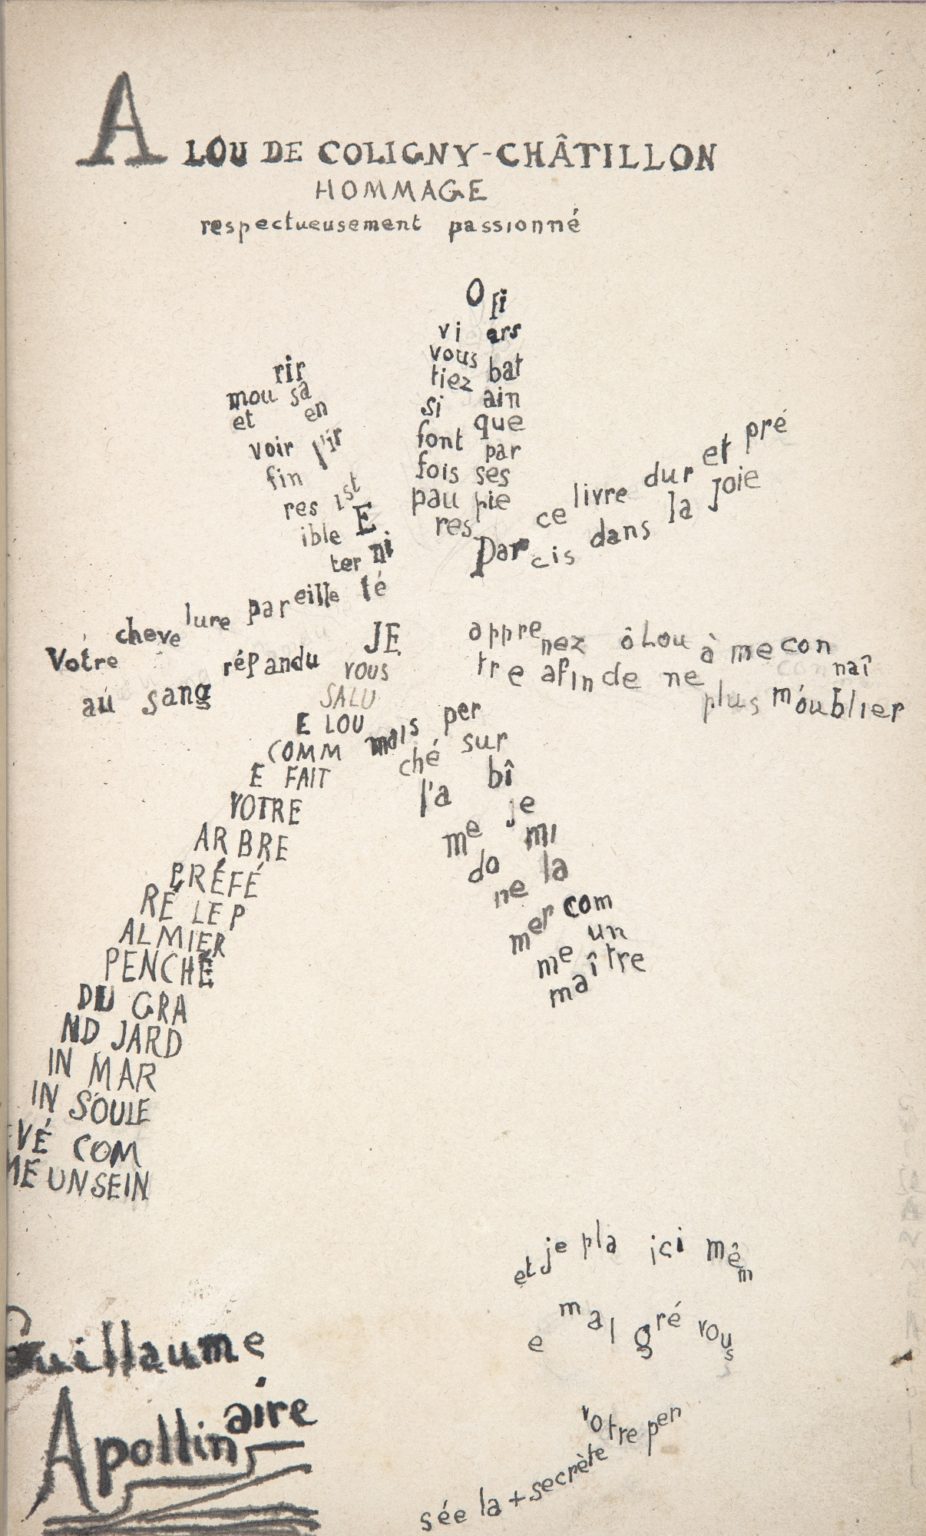 A LOU DE COLIGNY-CHÂTILLON
HOMMAGE
respectueusement passionné
mou rir
et sa
voir en
fin l'ir
res ist
ible E
ter ni
té
O fi
vi ers
vous bat
tiez ain
si que
font par
fois ses
pau pie
res
Par ce livre dur et pré
cis dans la Joie
Votre cheve lure pareille
au sang répandu
apprenez ô Lou à me con naî
tre afin de ne plus m'oublier
JE
VOUS
SALU
E LOU
COMM
E FAIT
VOTRE
ARBRE
PRÉFÉ
RÉ LE P
ALMIER
PENCHÉ
DU GRA
ND JARD
IN MAR
IN SOULE
VÉ COM
ME UN SEIN
mais per
ché sur
l'a bî
me je
do mi
ne la
mer com
me un
maître
et je pla ici mêm
e malgré vous
votre pen
sée la + secrète
Guillaume
Apollinaire